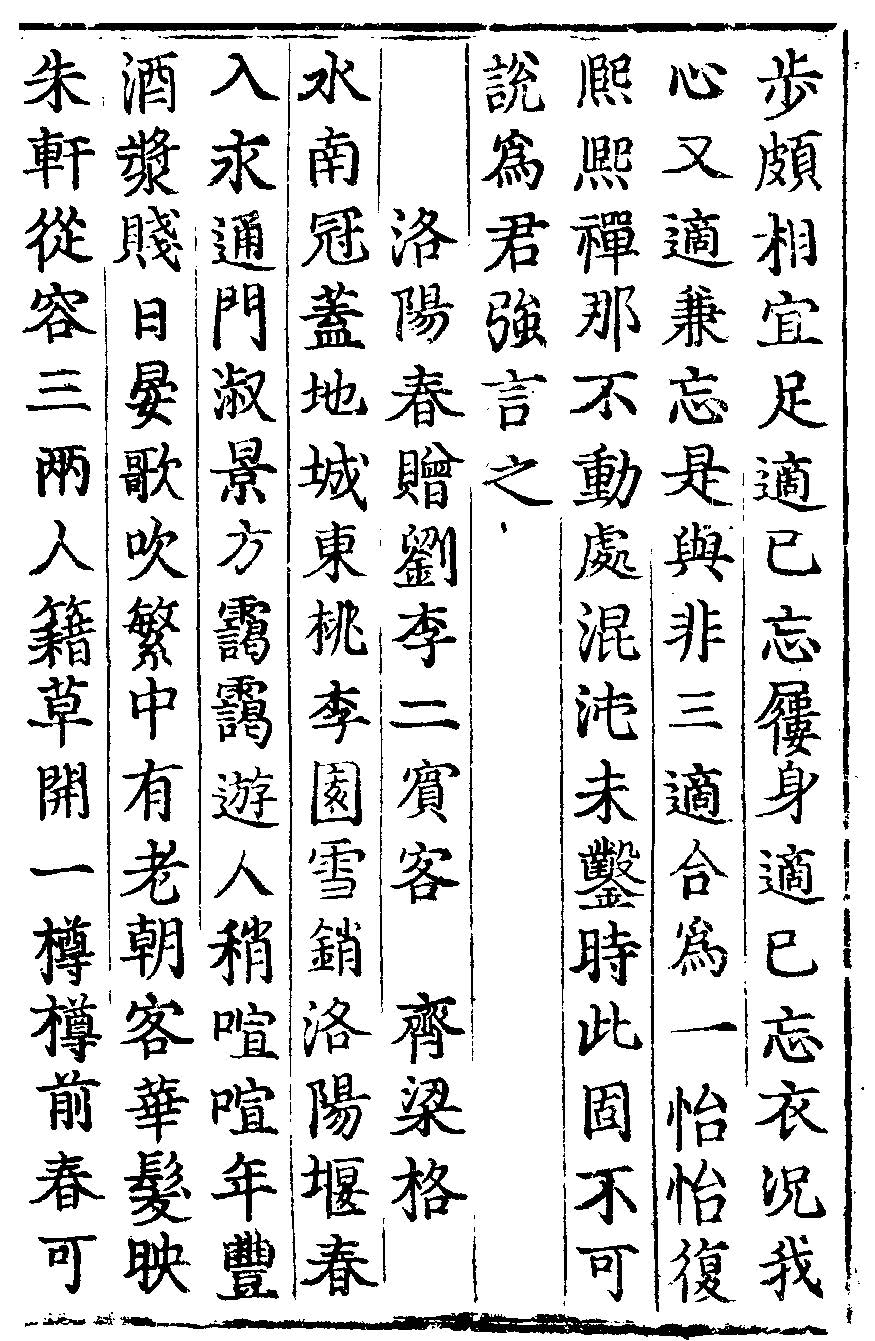 步頗相宜足適已忘屨身適已忘衣况我
心又適兼忘是與非三適合爲一怡怡復
熈熈禪那不動處混沌未鑿時此固不可
說爲君強言之
洛陽春贈劉李二賔客　齊梁格
水南冠蓋地城東桃李園雪銷洛陽堰春
入永通門淑景方靄靄遊人稍喧喧年豐
酒漿賤日晏歌吹繁中有老朝客華髮映
朱軒從容三兩人籍草開一樽樽前春可